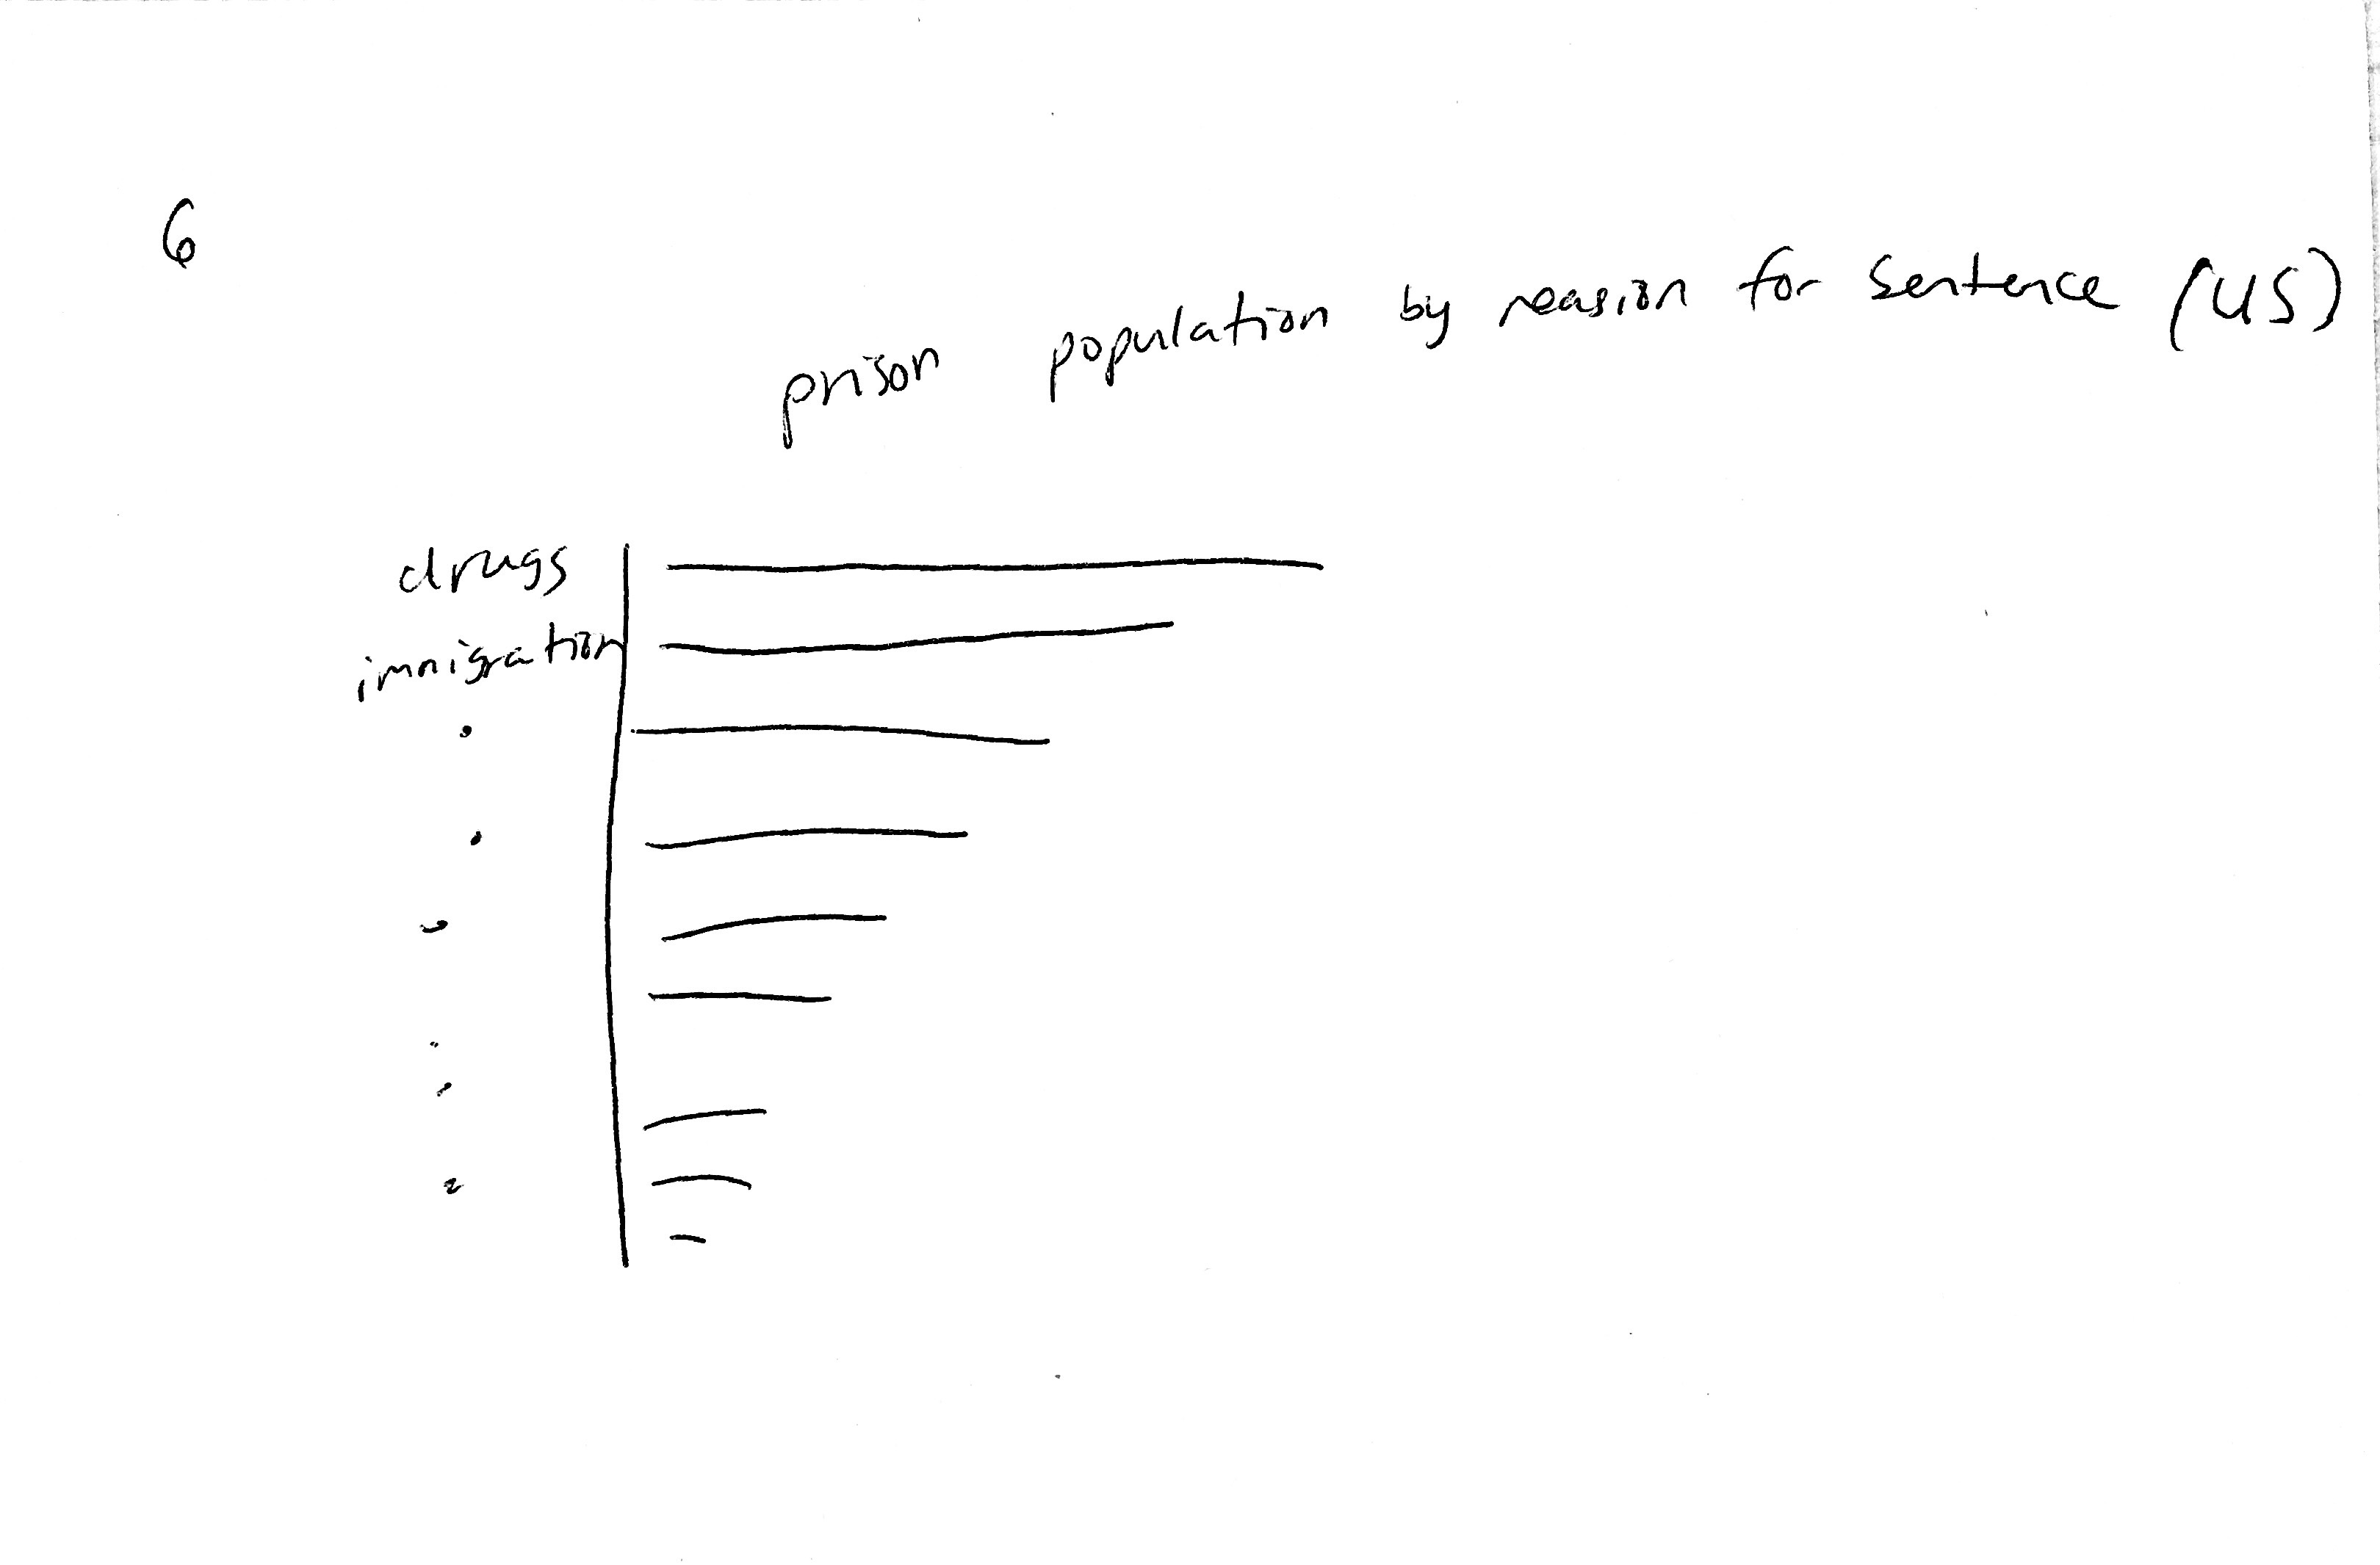 6
prison population by reasion for sentence (US)
drugs
immigration